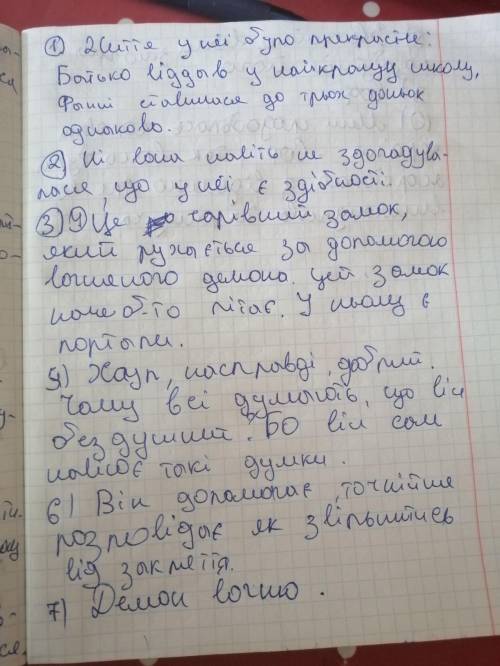 1) Життя у неї було прекрасне:
Батько віддыв у найкращу школу,
Фынні ставилася до трьох доньок
однаково.
2) Ні вона навіть не здогадува-
лася що у неї є здібності.
3) 4) Це чарівний замок,
який рухається за допомогою
вогняного демона. цей замок
наче б-то літає. У ньому є
порталы.
5) Хаул, насправді, добрий.
Чому всі думають, що він
бездушний? Бо він сам
навіює такі думки.
6) Він допомагає, точнійше
розповідає як звільнитись
від закляття.
7) Демон вогню.